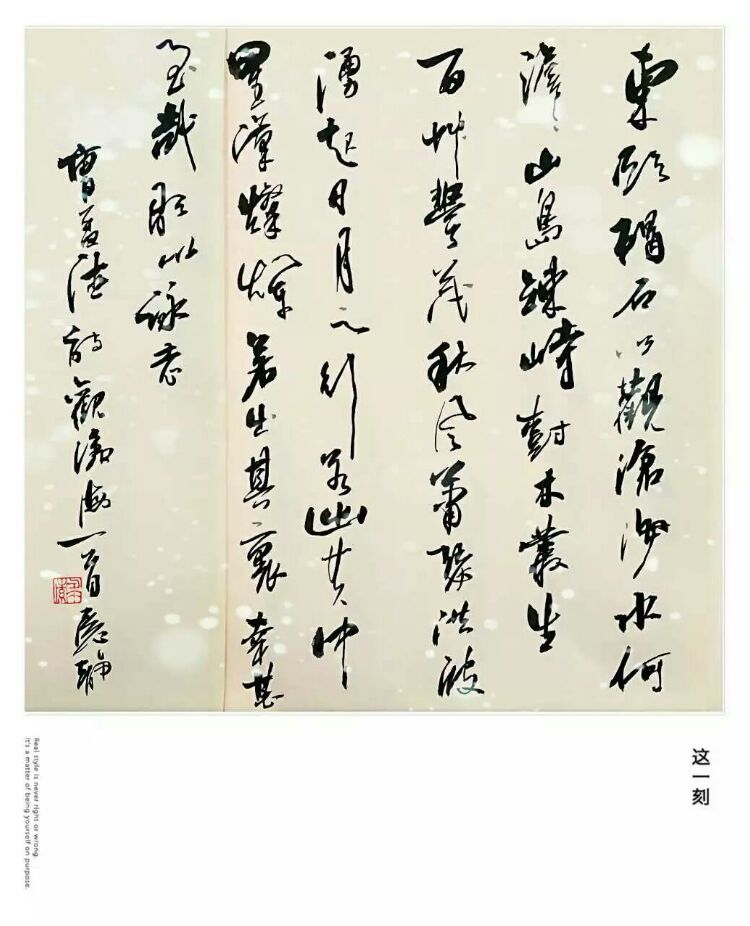 東臨碣石以觀滄海水何
澹々山島竦峙樹木叢生
百艸豐茂秋風蕭瑟洪波
湧起日月之行若出其中
星漢燦爛若出其裏幸甚
至哉歌以詠志
曹孟德詩觀滄海一首
这一刻
Real style is never right or wrong.
It's a matter of being yourself on purpose.